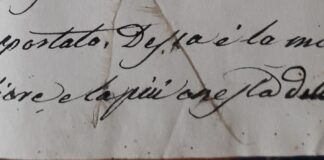 postato. Dessa è la mi
liore e la più onesta del